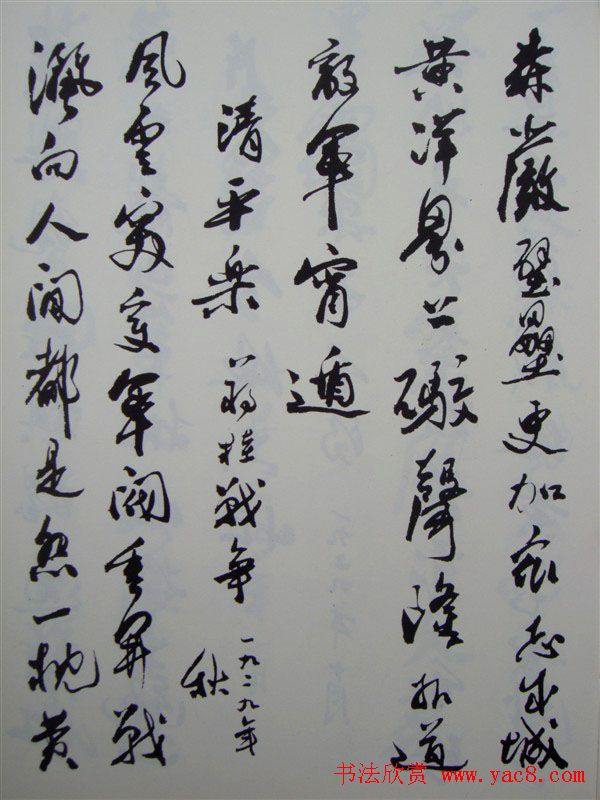 森严壁垒更加众志成城
黄洋界上礮聲隆报道
敵军宵遁
清平乐 蒋桂战争 一九二九年
秋
风云突变军阀重开战
洒向人间都是怨一枕黄
书法欣赏 www.yac8.com